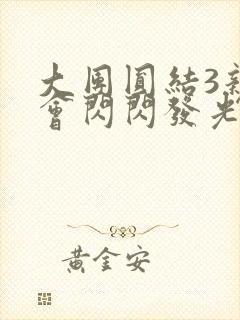 大團圓結3新
會閃閃發光
黃金安